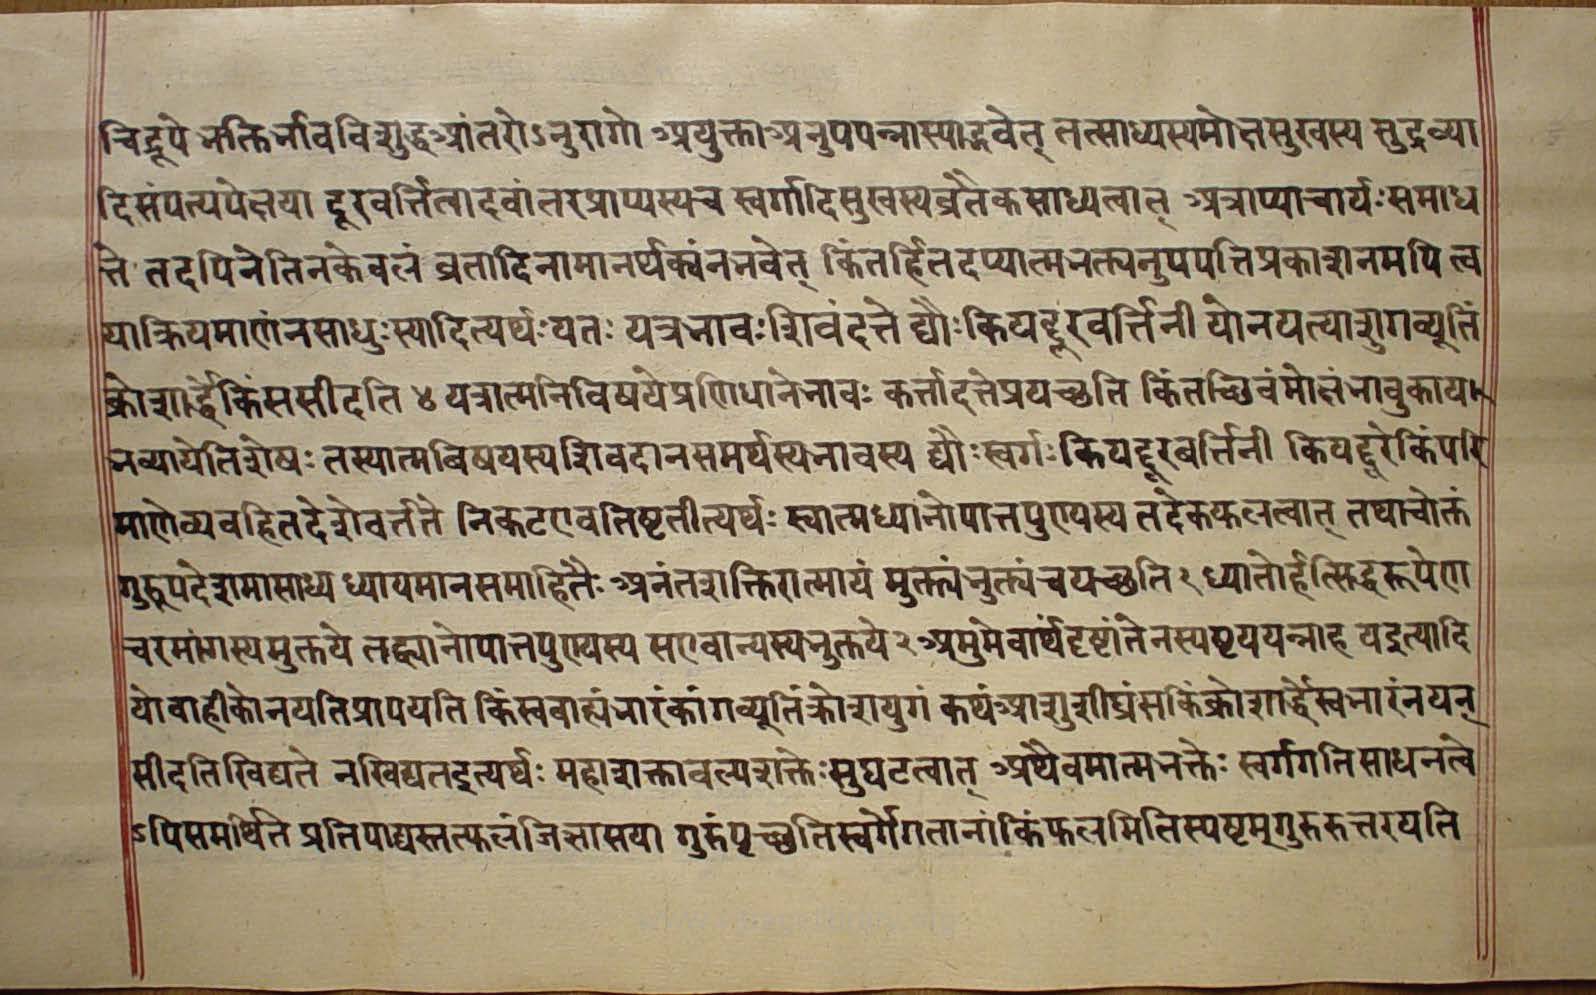 चिद्रूपे भक्तिर्भावविशुद्धआंतरोऽनुरागो अयुक्ताअनुपपन्नास्याद्भवेत् तत्साध्यस्यमोक्षसुखस्य सुद्रव्या
दिसंपत्यपेक्षया दूरवर्त्तित्वादवांतरप्राप्यस्यच स्वर्गादिसुखस्यव्रतैकसाध्यत्वात् अत्राप्याचार्यःसमाध
त्ते तदपिनेतिनकेवलं व्रतादिनामानर्थक्यंनभवेत् किंतर्हितदप्यात्मभक्त्यनुपपत्तिप्रकाशनमपि त्व
याक्रियमाणंनसाधुःस्यादित्यर्थःयतः यत्रभावःशिवंदत्ते द्यौःकियद्दूरवर्त्तिनी योनयत्याशुगव्यूतिं
क्रोशार्द्धेकिंससीदति ४ यत्रात्मनिविषयेप्रणिधानेभावः कर्त्तादत्तेप्रयच्छति किंतच्छिवंमोक्षंभावुकाय
भव्यायेतिशेषः तस्यात्मविषयस्यशिवदानसमर्थस्यभावस्य द्यौःस्वर्गःकियद्दूरवर्त्तिनी कियद्दूरेकिंपरि
माणेव्यवहितदेशेवर्तते निकटएवतिष्टतीत्यर्थः स्वात्मध्यानोपात्तपुण्यस्य तदेकफलत्वात् तथाचोक्तं
गुरूपदेशमासाध्य ध्यायमानसमाहितैः अनंतशक्तिरात्मायं मुक्त्यंभुक्त्यंचयच्छति १ ध्यातोर्हत्सिद्धरूपेण
चरमांगस्यमुक्तये तद्ध्यानोपात्तपुण्यस्य सएवान्यस्यभुक्तये २ अमुमेवार्थंदृष्टांतेनस्यष्टययन्नाह यइत्यादि
योवाहीकोनयतिप्रापयति किंस्ववाह्यंभारंकांगव्यूतिंक्रोशयुगं कथंआशुशीघ्रंसकिंक्रोशार्द्धेस्वभारंनयन्
सीदतिखिद्यते नखिद्यतइत्यर्थः महाशक्तावल्पशक्तेःसुघटत्वात् अथैवमात्मभक्तेः स्वर्गगतिसाधनत्वे
ऽपिसमर्थिते प्रतिपाद्यस्तत्फलंजिज्ञासया गुरुंपृच्छतिस्वर्गेगतानांकिंफलमितिस्पष्टम्गुरुरुत्तरयति